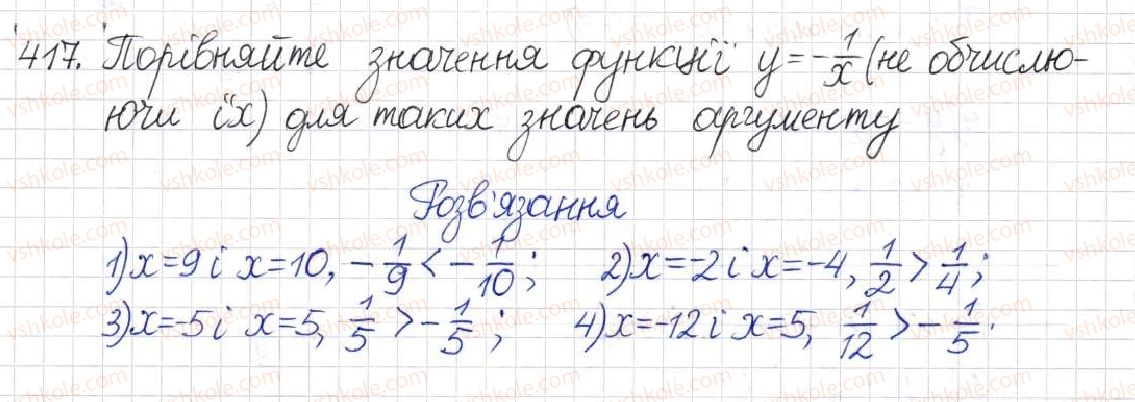 417. Порівняйте значення функції y = -1/x (не обчислю-
ючи їх) для таких значень аргументу
Розв'язання
1) x = 9 і x = 10, -1/9 < -1/10; 2) x = -2 і x = -4, 1/2 > 1/4;
3) x = -5 і x = 5, 1/5 > -1/5; 4) x = -12 і x = 5, 1/12 > -1/5.
vshkole.com